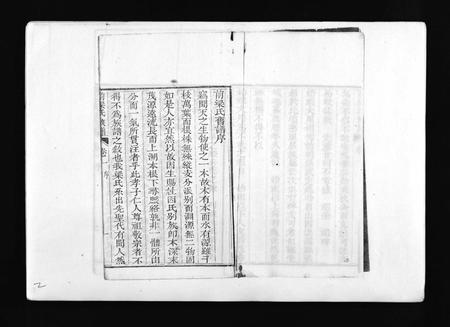 前梁氏舊譜序
竊聞天之生物使之一本故木有本而水有源雖千
枝萬葉而根株無殊支分派別而淵源無二物固
如是人亦宜然以故因生賜姓因氏別族即木深末
茂源遠流長而上溯本根下尋照絡孰非一體所出
分而一氣所貫注者乎此孝子仁人尊祖敬宗者不
得不為族譜之敘也我梁氏系出先聖代有聞人然
梁氏族譜 卷 序
2